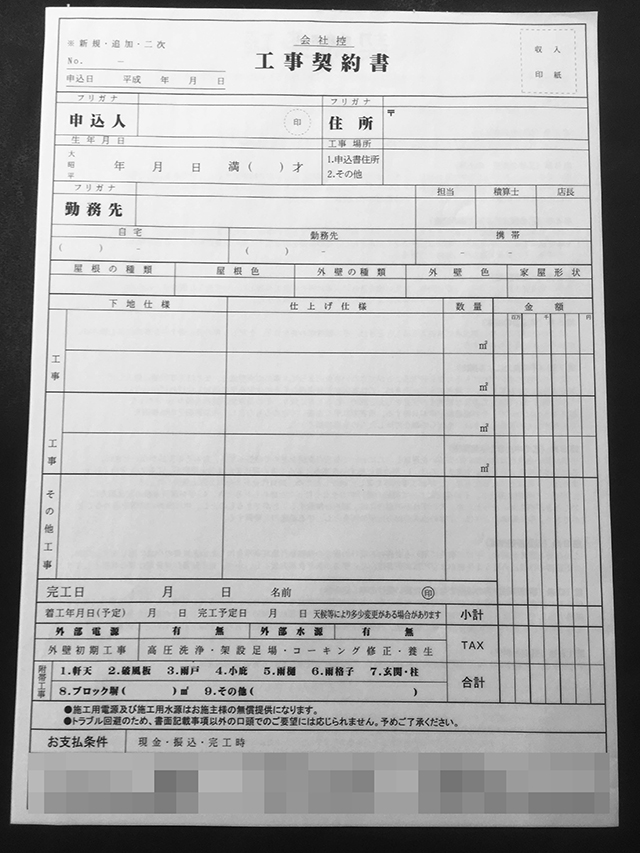 ※新規・追加・二次
会社控
工事契約書
収入
印紙
No. －
申込日 平成 年 月 日
フリガナ
フリガナ
申込人
印
住所
〒
生年月日
工事場所
大
昭
平
年 月 日 満( )才
1.申込書住所
2.その他
フリガナ
担当 積算士 店長
勤務先
自宅 勤務先 携帯
( ) － ( ) － － －
屋根の種類 屋根色 外壁の種類 外壁色 家屋形状
下地仕様 仕上げ仕様 数量 金額
百万 千 円
工事
㎡
㎡
工事
㎡
㎡
その他工事
完工日 月 日 名前 印
着工年月日(予定) 月 日 完工予定日 月 日 天候等により多少変更がある場合があります
小計
外部電源 有 無 外部水源 有 無
TAX
外壁初期工事 高圧洗浄・架設足場・コーキング修正・養生
附帯工事
1.軒天 2.破風板 3.雨戸 4.小庇 5.雨樋 6.雨格子 7.玄関・柱
合計
8.ブロック塀( )㎡ 9.その他( )
●施工用電源及び施工用水源はお施主様の無償提供になります。
●トラブル回避のため、書面記載事項以外の口頭でのご要望には応じられません。予めご了承ください。
お支払条件 現金・振込・完工時